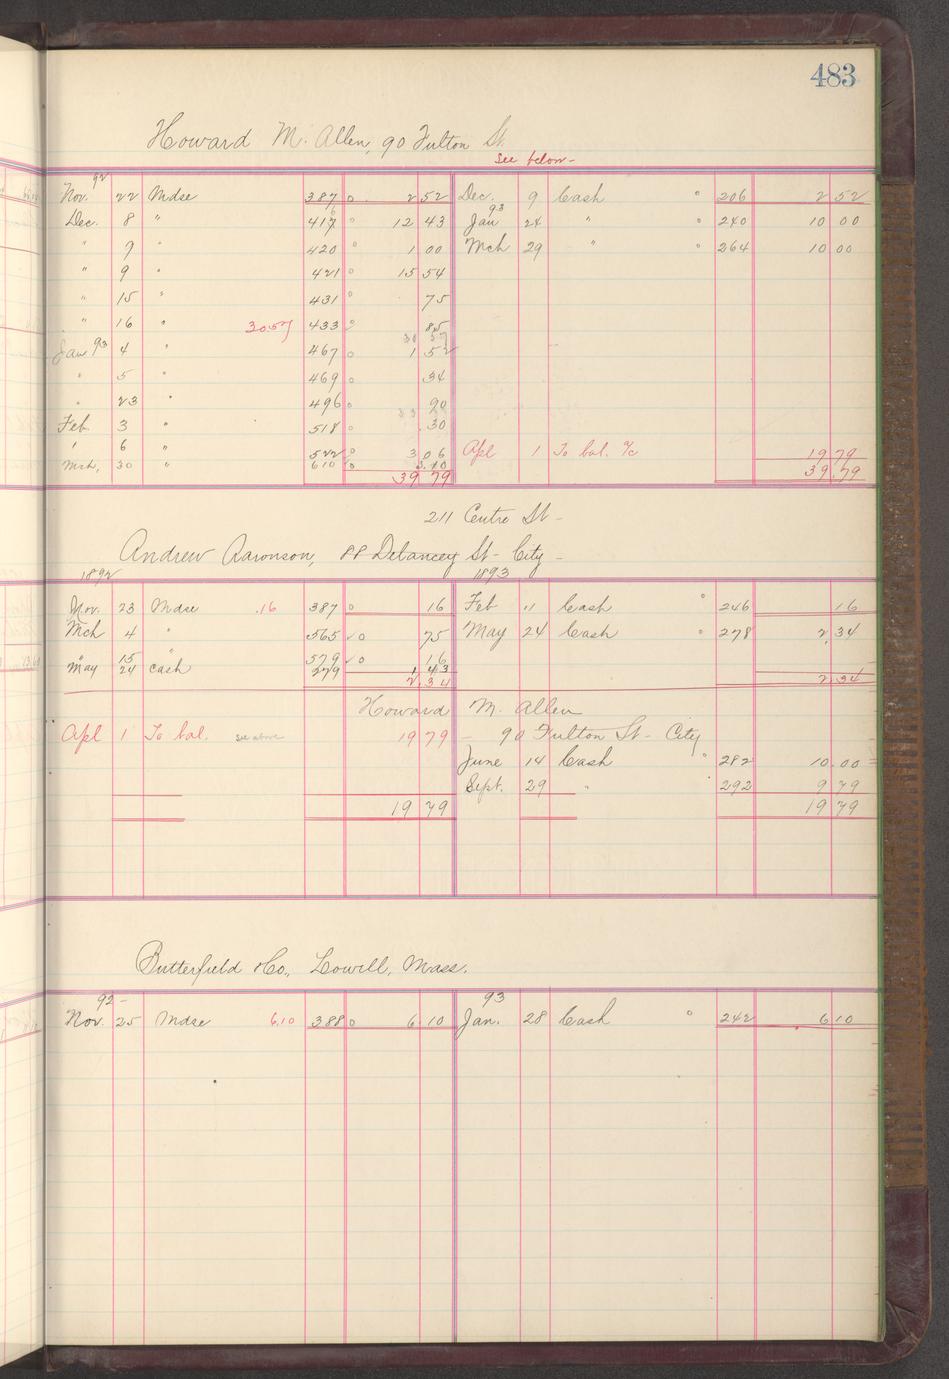 483
Howard M. Allen, 90 Fulton St.
See below-
92 93
Nov. 22 Mdse 387 o 2 52 Dec. 9 Cash " 206 2 52
Dec. 8 " 417 o 12 43 Jan 24 " " 240 10 00
" 9 " 420 o 1 00 Mch 29 " " 264 10 00
" 9 " 421 o 15 54
" 15 " 431 o 75
" 16 " 30.57 433 o 85
Jan 93 4 " 467 o 1 52
" 5 " 469 o 34
" 23 " 496 o 90
Feb. 3 " 518 o .30
' 6 " 522 o 3 06 Apl 1 To bal. %c 19 79
Mch, 30 " 610 o 39 79
39 79
211 Centre St -
Andrew Aaronson, 88 Delancey St- City -
1892 1893
Nov. 23 Mdse .16 387 o 16 Feb 11 Cash " 246 16
Mch 4 " 565 ✓o 75 May 24 Cash " 278 2.34
15 " 579 ✓o 16
May 24 Cash 279 1 43 2 34
2.34
Howard M. Allen
Apl 1 To bal. see above 19 79 - 90 Fulton St- City
June 14 Cash " 282 10.00
Sept. 29 " 292 9 79
19 79 19 79
Butterfield & Co., Lowell, Mass.
92- 93
Nov. 25 Mdse 6.10 388 o 6 10 Jan. 28 Cash " 242 6 10